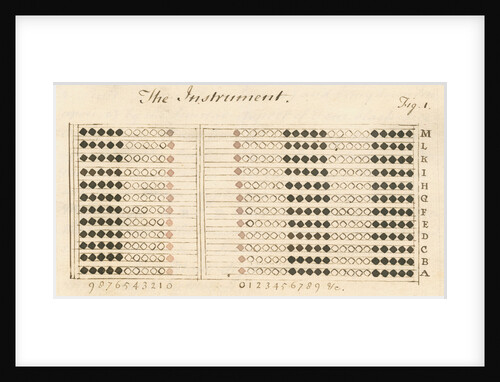 The Instrument.
Fig. 1.
M
L
K
I
H
G
F
E
D
C
B
A
9876543210
0123456789 &c.